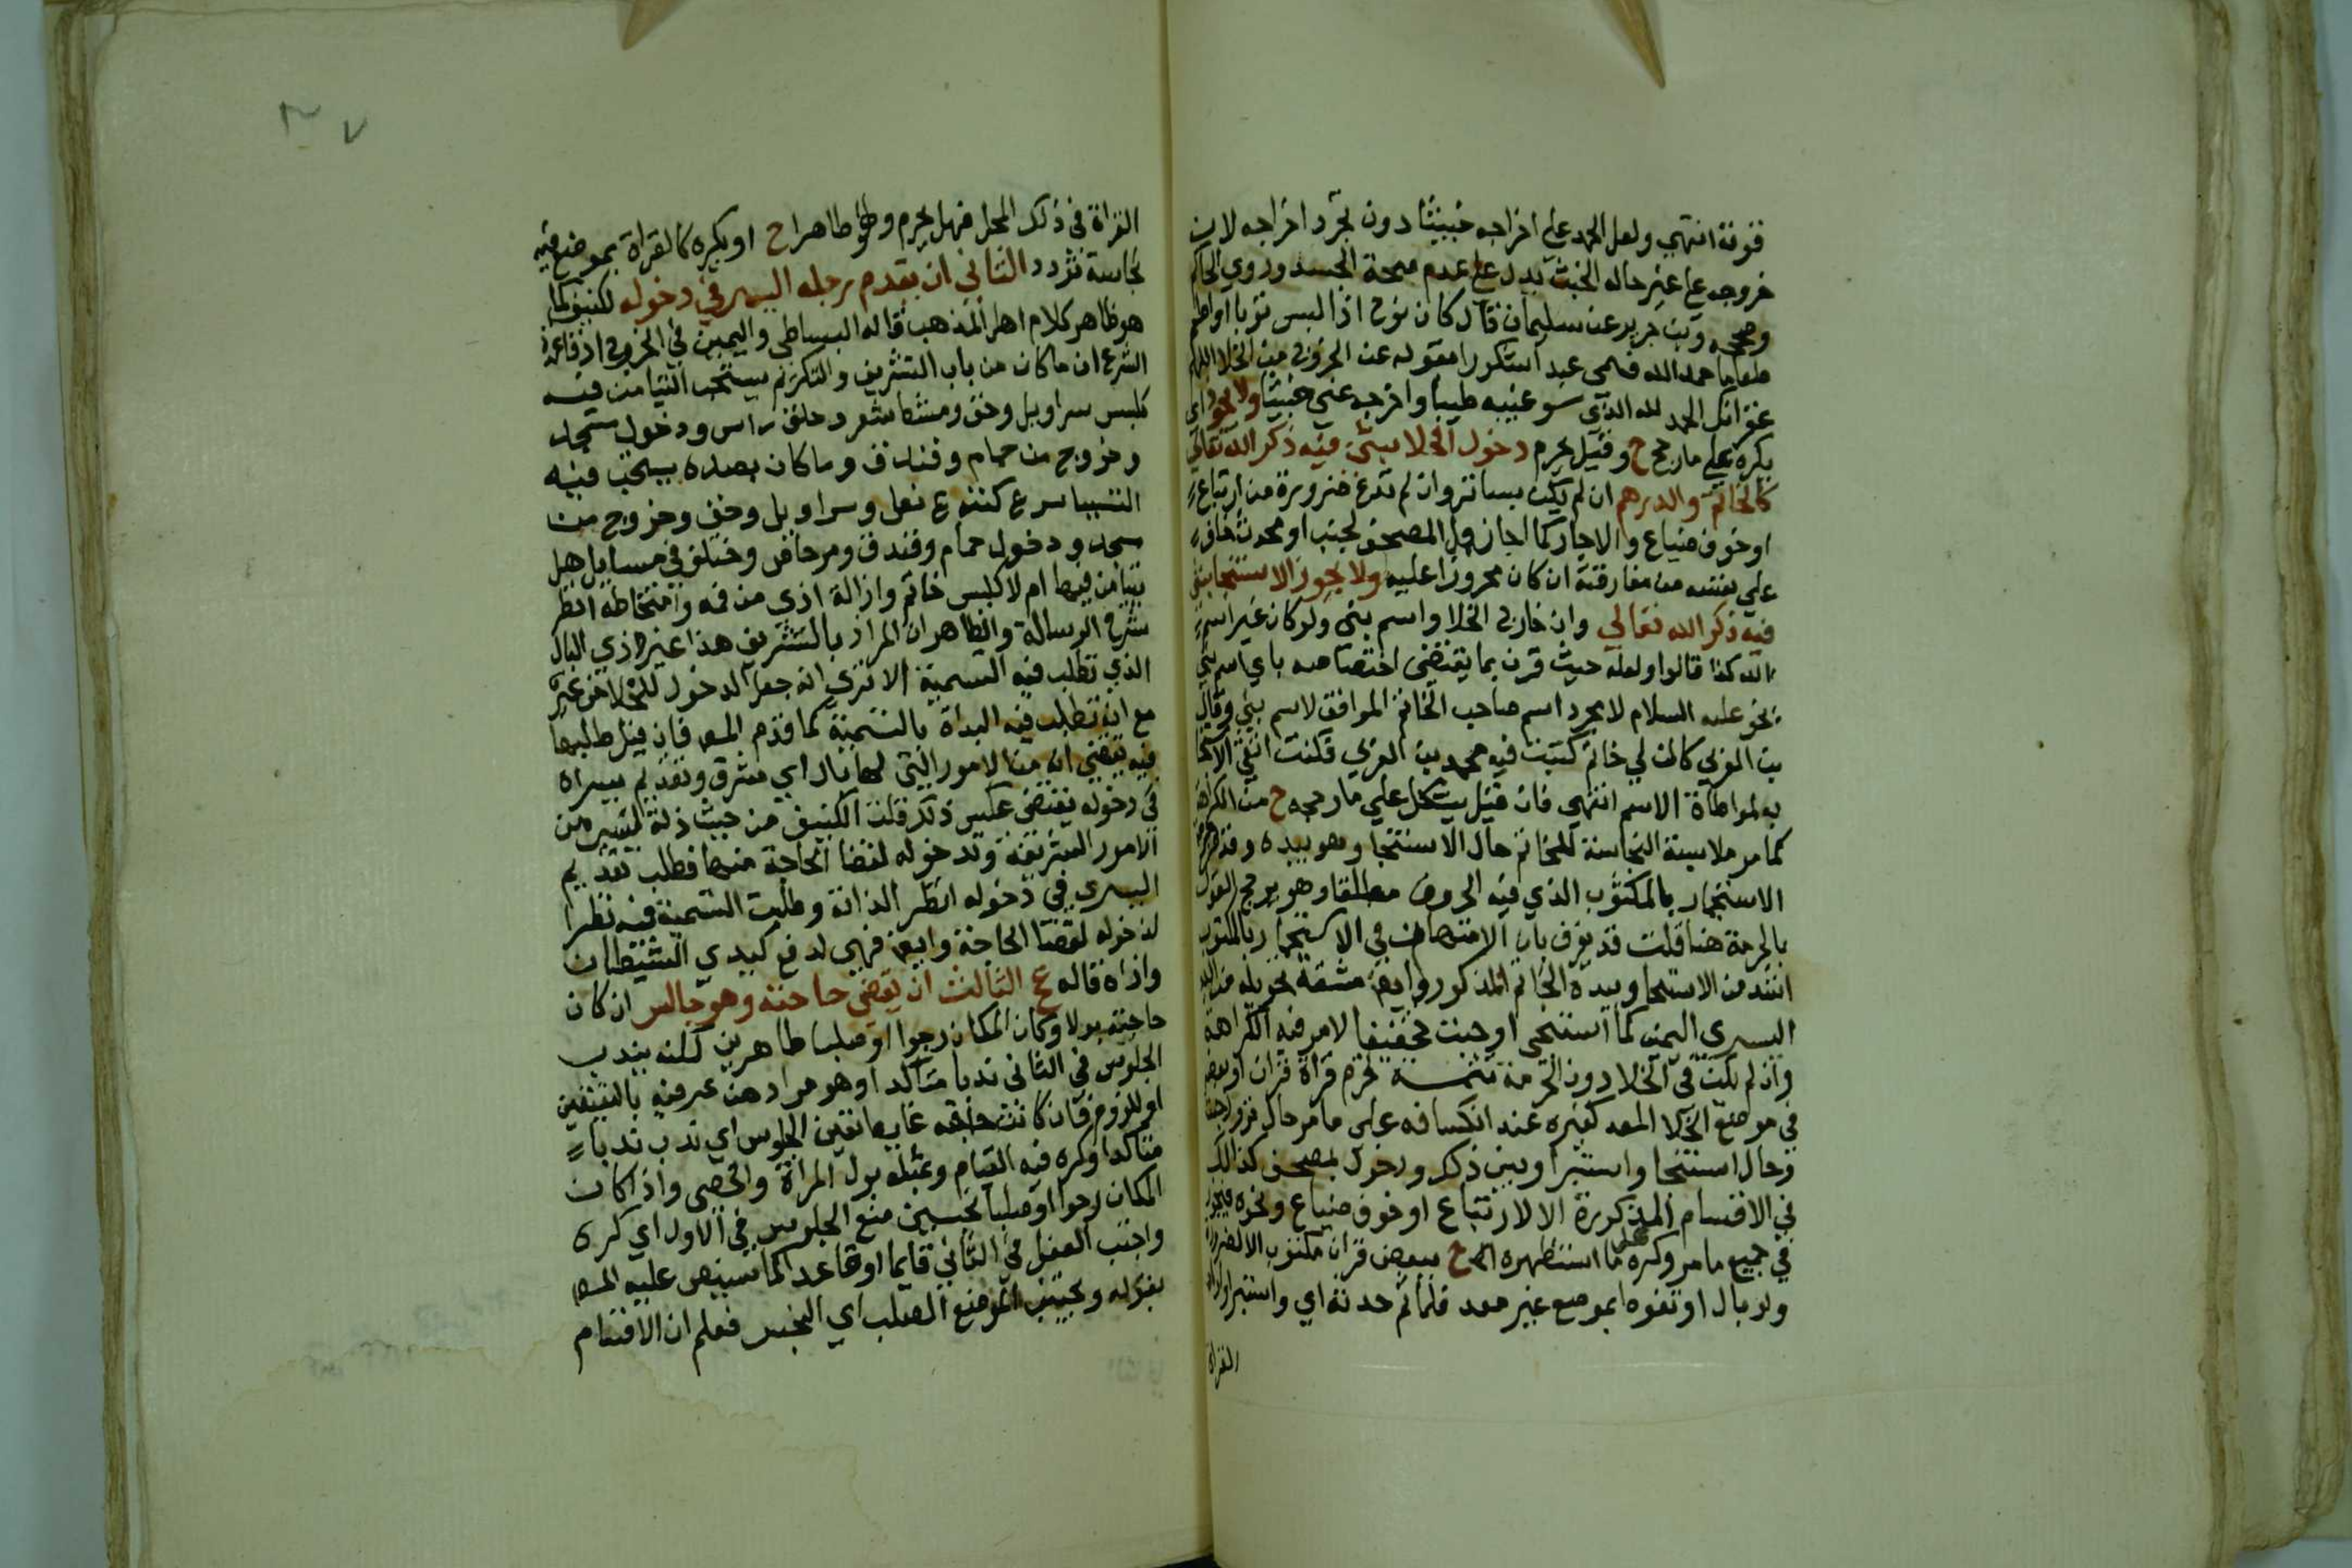 قوته انتهي ولعل الحمد علي اخراجه خبيثا دون مجرد اخراجه لان
خروجه علي غير حاله الخبث يدل علي عدم صحة الجسد وروي الحاكم
وصححه وبن جرير عن سليمان قال كان نوح اذا لبس ثوبا او طعم
طعاما حمد الله فسمي عبدا شكورا مقوله عند الخروج من الخلا اللهم
غفرانك الحمد لله الذي سوغنيه طيبا واخرجه عني خبيثا ولا يجوز اي
يكره علي ما رجح ح وقيل يحرم دخول الخلا بشئ فيه ذكر الله تعالي
كالخاتم والدرهم ان لم يكن بساتر وان لم تدع ضرورة من ارتياع
او خوف ضياع والا جاز كما اجاز المصحف لجنب او محدث خاف
علي نفسه من مفارقته ان كان محروزا عليه ولا يجوز الاستنجا بشئ
فيه ذكر الله تعالي وان خارج الخلا واسم نبي ولو كان غير اسم
الله كذا قالوا ولعله حيث قرن بما يقتضي اختصاصه باي اسم نبي
نحو عليه السلام لا مجرد اسم صاحب الخاتم الموافق لاسم نبي وقال
بن العزبي كان لي خاتم كتبت فيه محمد بن العربي فكنت اتقي الاستنجا
به لمواطاة الاسم انتهي فان قيل يشكل علي ما رجحه ح من الكراهة
كما مر ملابسة النجاسة للخاتم حال الاستنجا وهو بيده وقد
الاستجمار بالمكتوب الذي فيه الحروف مطلقا وهو يرجح القول
بالحرمة هنا قلت قد يفرق بان الامتهان في الاستجمار بالمكتوب
اشد من الاستنجا وبيده الخاتم المذكور وايضا مشقة تحويله من اليد
اليسري اليمن كما استنجي اوجبت تخفيفا لامر فيه الكراهة
وان لم يكن في الخلا دون الحرمة تتمة تحرم قراة قران او بعضه
في موضع الخلا المعد كغيره عند انكسافه علي ما مر حال نزول
وحال استنجا واستبرا وبين ذلك ودخول بمصحف كذلك
في الاقسام المذكورة الا لارتياع او خوف ضياع ونحوه فيجوز
في جميع ما مر وكره علي ما استظهره ح ببعض قران مكتوب الا لضرورة
ولو بال او تغوط بموضع غير معد فلما تم حدثه اي واستبرا واراد
القراة
القراة في ذلك المحل فهل يحرم وهو ظاهر ح او يكره كالقراة بموضع فيه
نجاسة تردد الثاني ان يقدم رجله اليسري في دخوله لكنيف كما
هو ظاهر كلام اهل المذهب قاله البساطي واليمين في الخروج اذ قاعدة
الشرع ان ما كان من باب التشريف والتكريم يستحب التيامن فيه
كلبس سراويل وخف ومشط شعر وحلق راس ودخول مسجد
وخروج من حمام وفندق وما كان بضده يستحب فيه
التياسر ع كنزع نعل وسراويل وخف وخروج من
مسجد ودخول حمام وفندق ومرحاض وختلف في مسايل هل
يتيامن فيها ام لا كلبس خاتم وازالة اذي من فمه وامتخاطه انظر
شرح الرسالة والظاهر ان المراد بالتشريف هذا غير ذي البال
الذي تطلب فيه التسمية الا تري انه جعل الدخول للخلا من غيره
مع انه تطلب فيه البداة بالتسمية كما قدم المص فان قيل طلبها
فيه يقتضي انه من الامور التي لها بال اي مشرف وتقديم يسراه
في دخوله يقتضي عكس ذلك قلت الكنيف من حيث ذاته ليس من
الامور الشريفة وقد دخوله لقضا الحاجة منها فطلب تقديم
اليسري في دخوله انظر لذاته وطلبت التسمية فيه نظرا
لدخوله لقضا الحاجة وايضا فهي لدفع كيدي الشيطان
واذاه قاله ع الثالث ان يقضي حاجته وهو جالس ان كان
حاجته بولا وكان المكان رخوا او صلبا طاهرين لكنه يندب
الجلوس في الثاني ندبا متاكدا وهو مراد من عبر فيه بالتعيين
او للزوم فان كانت حاجته غايطا تعين الجلوس اي ندب ندبا
متاكدا وكره فيه القيام ومثله بول المراة والخصي واذا كان
المكان رخوا او صلبا نجسين منع الجلوس في الاول اي كره
واجتنب الفعل في الثاني قايما او قاعدا كما سينص عليه المص
بقوله ويجتنب الموضع الصلب اي النجس فعلم ان الاقسام